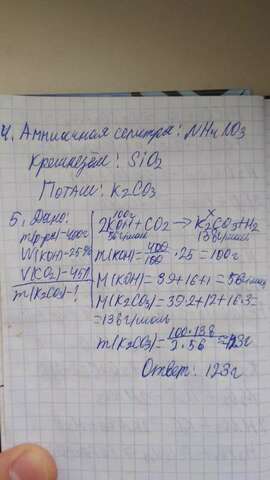 4. Аммиачная селитра: NH4NO3
Кремнезём: SiO2
Поташ: K2CO3
5. Дано:
m(р-ра)=400г
W(KOH)=25%
V(CO2)=45л
m(K2CO3)-?
100г x
2KOH+CO2 → K2CO3+H2
56г/моль 138г/моль
m(KOH)=400/100·25=100г
M(KOH)=39+16+1=56г/моль
M(K2CO3)=39·2+12+16·3=
=138г/моль
m(K2CO3)=100·138/2·56=123г
Ответ: 123г